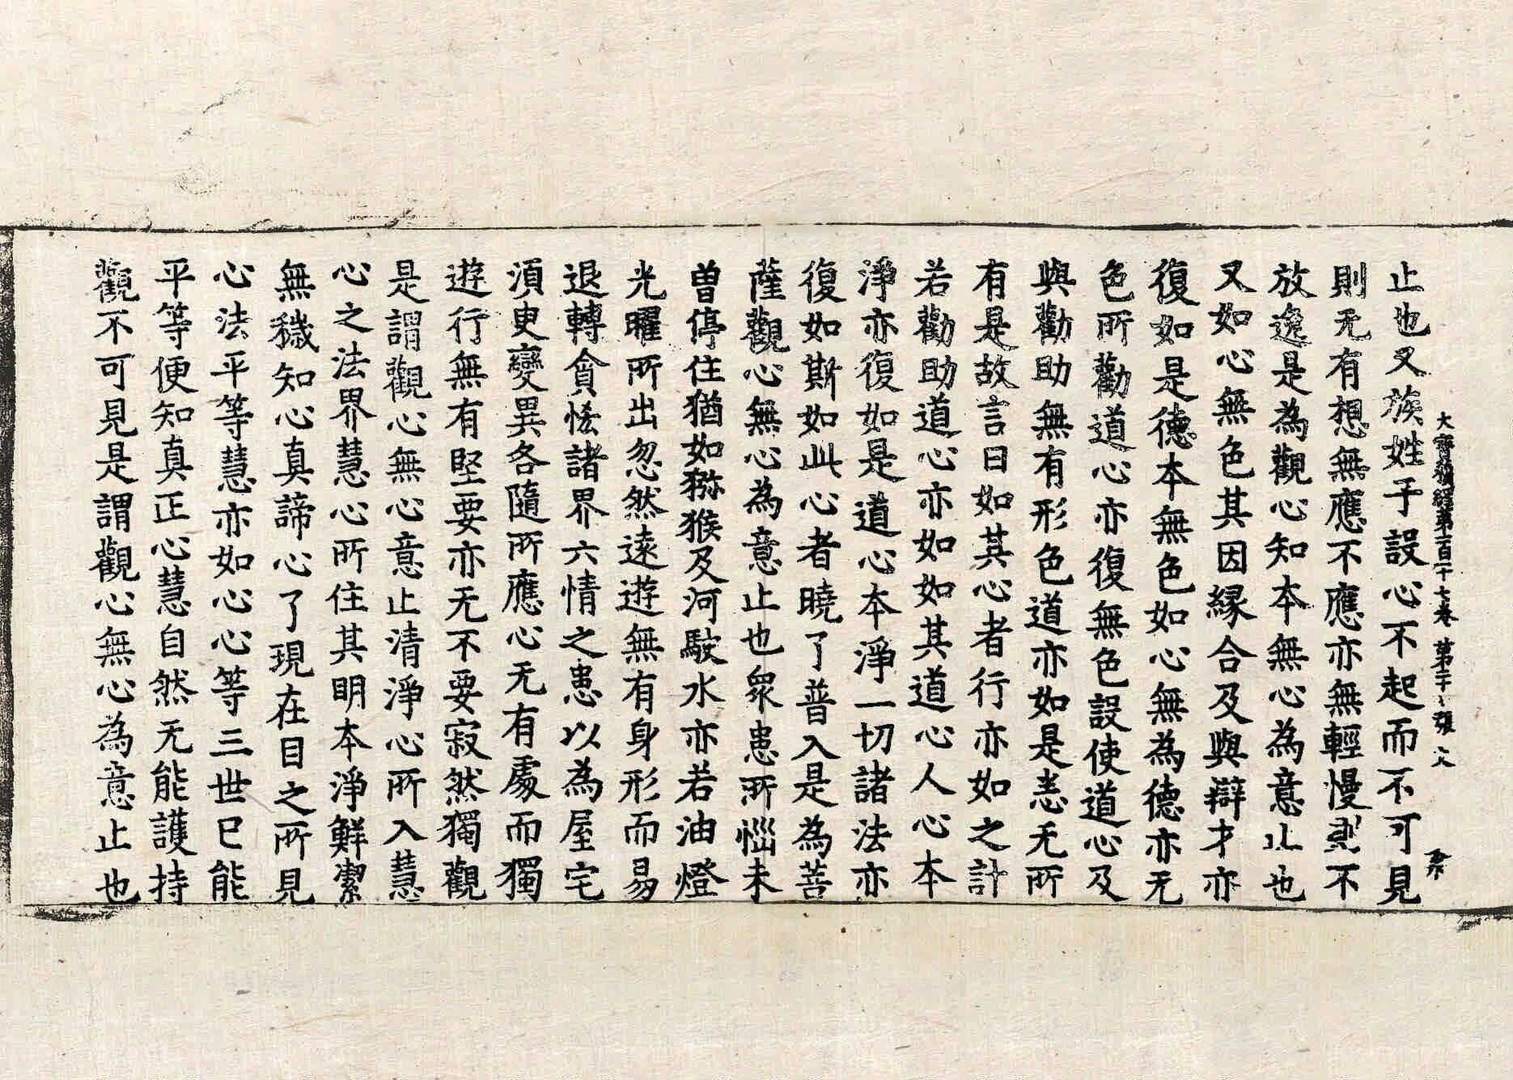 大寶積經第一百十七卷 第二十八張 文
止也又族姓子設心不起而不可見
則无有想無應不應亦無輕慢則不
放逸是為觀心知本無心為意止也
又如心無色其因緣合及與辯才亦
復如是德本無色如心無為德亦无
色所勸道心亦復無色設使道心及
與勸助無有形色道亦如是恚无所
有是故言曰如其心者行亦如之計
若勸助道心亦如如其道心人心本
淨亦復如是道心本淨一切諸法亦
復如斯如此心者曉了普入是為菩
薩觀心無心為意止也衆患所惱未
曾停住猶如猕猴及河駛水亦若油燈
光曜所出忽然遠遊無有身形而易
退轉貪恡諸界六情之患以為屋宅
須臾變異各隨所應心无有處而獨
遊行無有堅要亦无不要寂然獨觀
是謂觀心無心意止清淨心所入慧
心之法界慧心所住其明本淨鮮潔
無穢知心真諦心了現在目之所見
心法平等慧亦如心心等三世已能
平等便知真正心慧自然无能護持
觀不可見是謂觀心無心為意止也